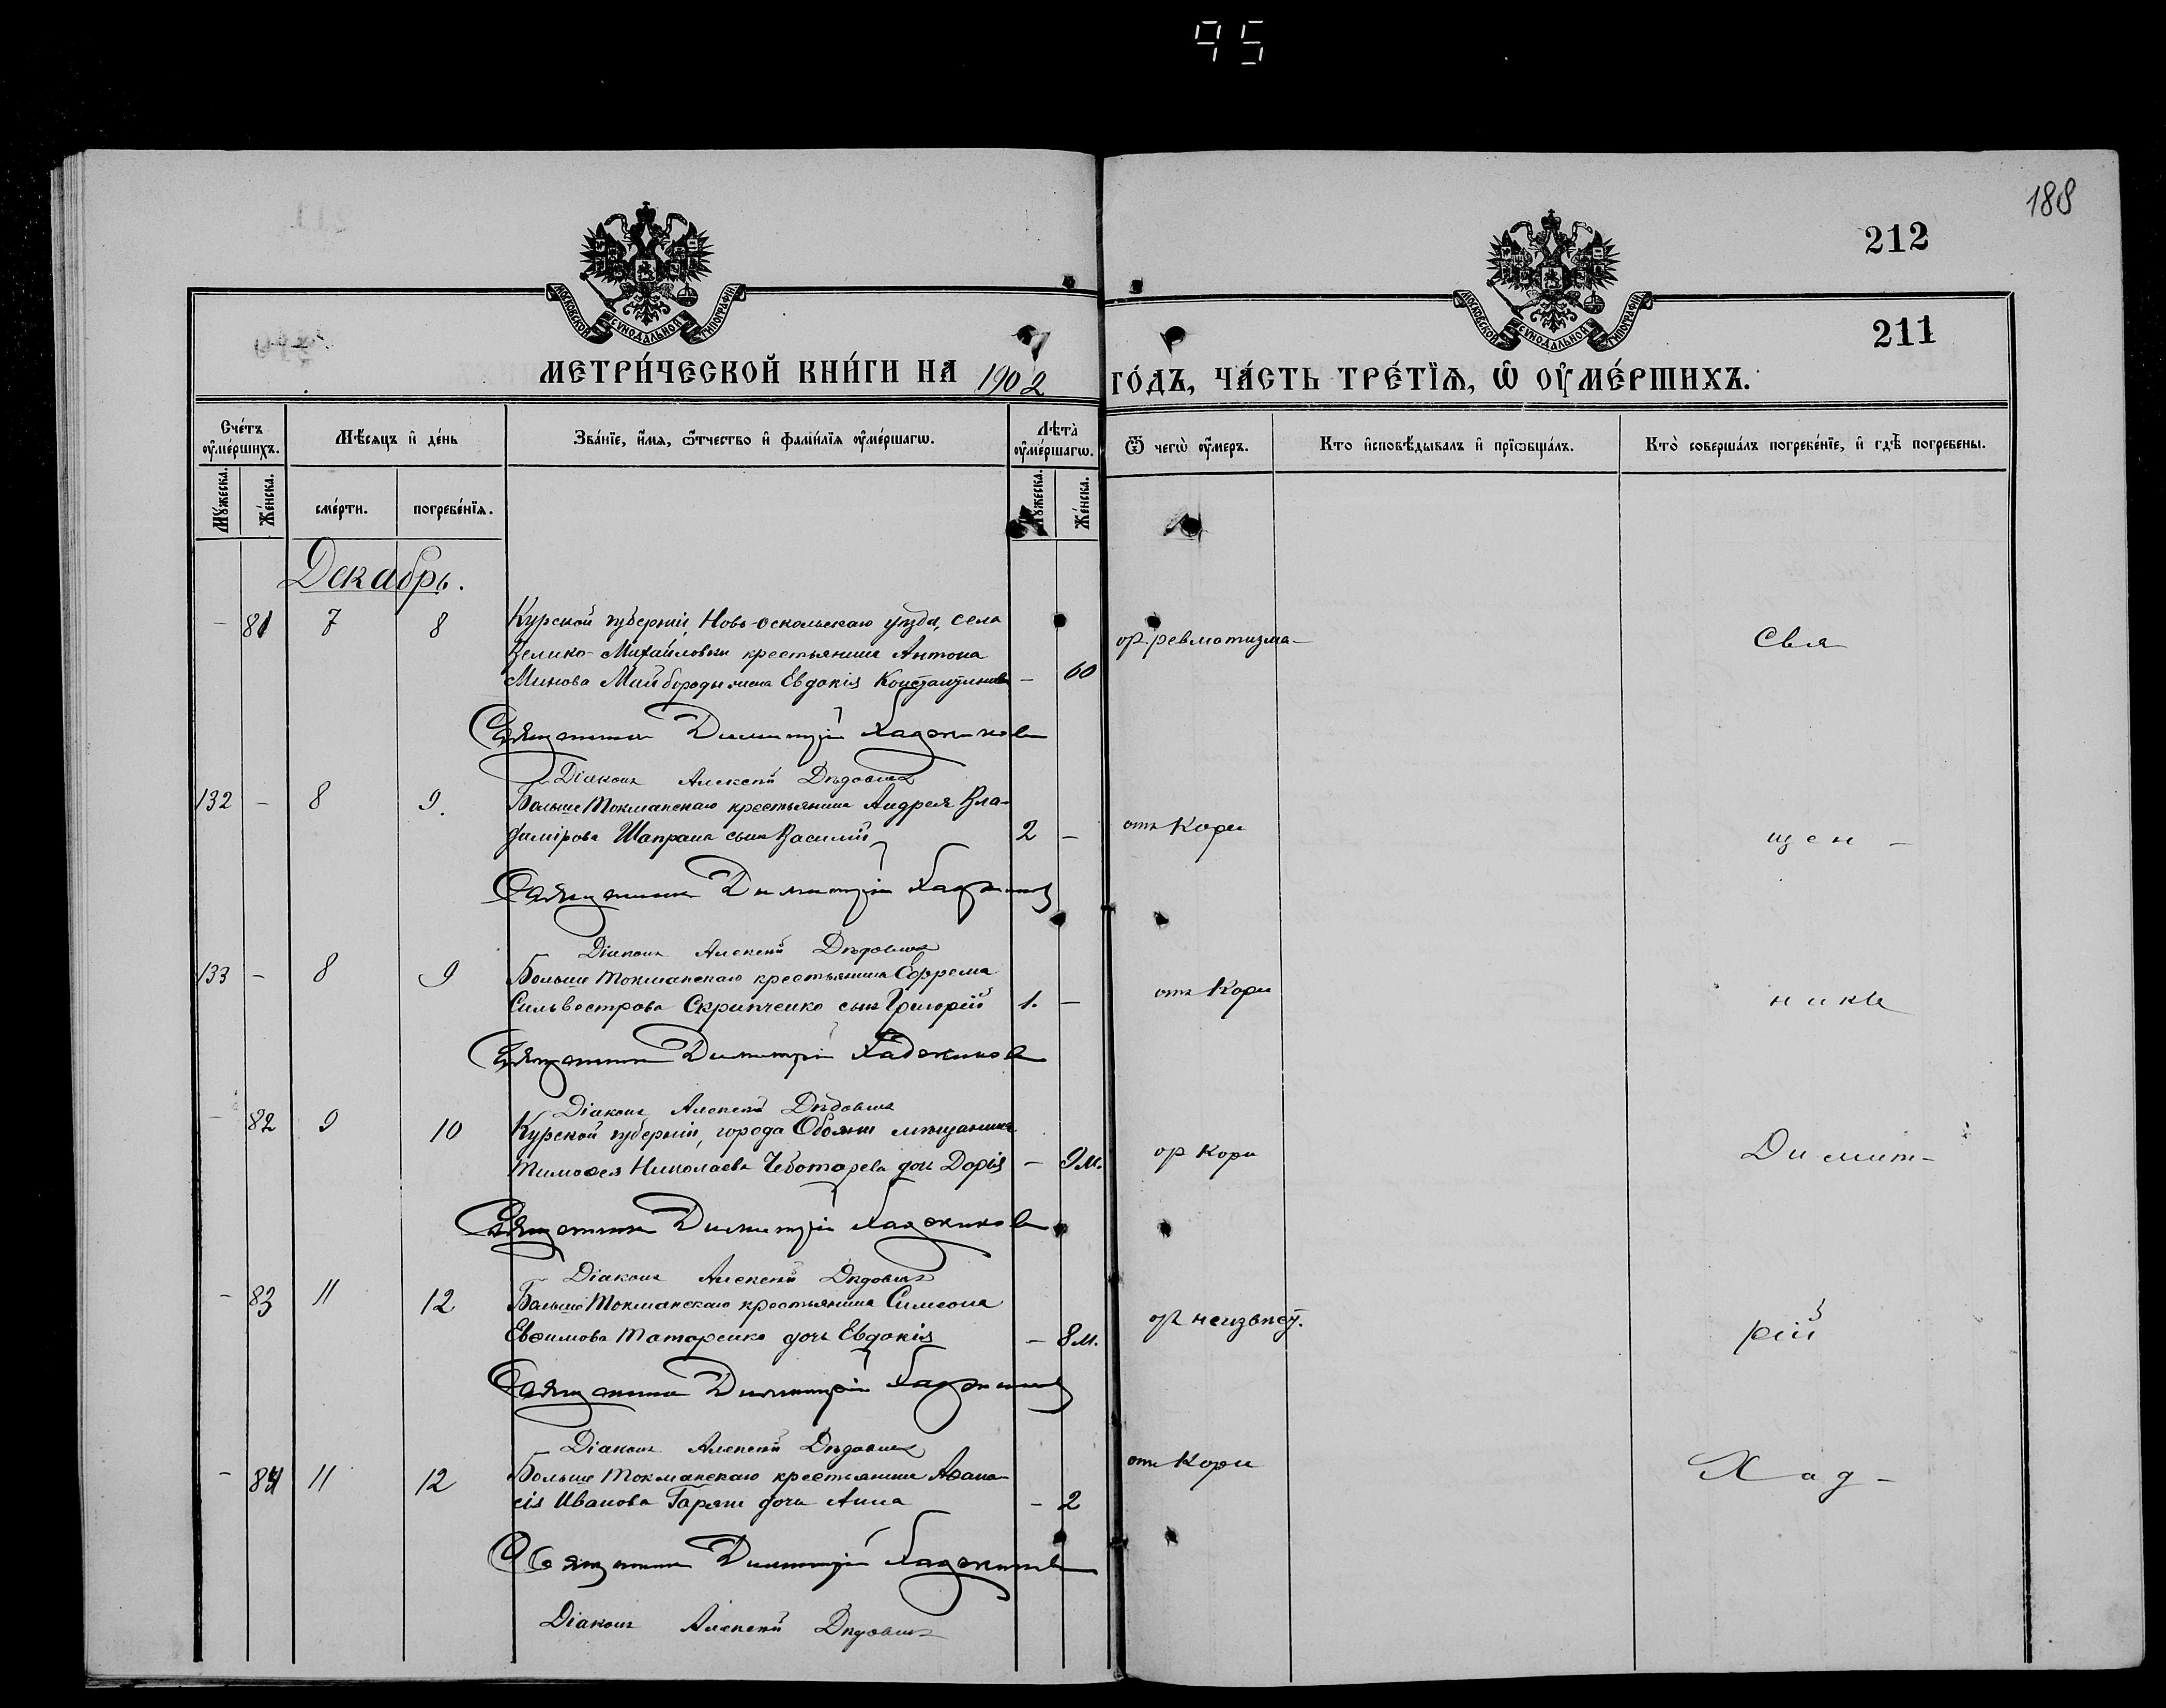 95
188
212
211
МОСКОВСКОЙ СУНОДАЛЬНОЙ ТИПОГРАФІИ
МОСКОВСКОЙ СУНОДАЛЬНОЙ ТИПОГРАФІИ
МЕТРИ́ЧЕСКОЙ КНИ́ГИ НА 1902
ГО́ДЪ, ЧА́СТЬ ТРЕ́ТЇѦ, Ѡ҆ ОУ҆МЕ́РШИХЪ.
Сче́тъ оу҆ме́ршихъ.
Мѣ́сяцъ и҆ де́нь
Зва́нїе, и҆́мя, ѻ҆́тчество и҆ фами́лїя оу҆ме́ршагѡ.
Лѣ́та̀ оу҆ме́ршагѡ.
Ѿ чегѡ̀ оу҆́меръ.
Кто и҆сповѣ́дывалъ и҆ прїѡбща́лъ.
Кто̀ соверша́лъ погребе́нїе, и҆ гдѣ̀ погребены.
Мꙋ́жеска.
Же́нска.
сме́рти.
погребе́нїя.
Мꙋ́жеска.
Же́нска.
Декабрь.
– 81 7 8 Курской губерніи, Ново-Оскольскаго уѣзда, села
Велико-Михайловки крестьянина Антона
Минова Майбороды жена Евдокія Константинова – 60 от ревматизма – Свя
Священник Димитрій Хаджинов
Діаконъ Алексѣй Дѣдовичъ
132 – 8 9. Больше Токмакскаго крестьянина Андрея Вла-
димірова Шапрана сынъ Василій 2 – отъ Кори щен –
Священник Димитрій Хаджинов
Діаконъ Алексѣй Дѣдовичъ
133 – 8 9 Больше Токмакскаго крестьянина Ефрема
Сильвестрова Скрипченко сынъ Григорій 1. – отъ Кори никъ
Священник Димитрій Хаджинов
Діаконъ Алексѣй Дѣдовичъ
– 82 9 10 Курской губерніи, города Обояни мѣщанина
Тимоѳея Николаева Чеботарева дочь Дарія – 9 м. от Кори Димит-
Священник Димитрій Хаджинов
Діаконъ Алексѣй Дѣдовичъ
– 83 11 12 Больше Токмакскаго крестьянина Симеона
Евѳимова Татаренко дочь Евдокія – 8 м. от неизвѣст. рій
Священник Димитрій Хаджинов
Діаконъ Алексѣй Дѣдовичъ
– 84 11 12 Больше Токмакскаго крестьянина Аѳана-
сія Иванова дочь Анна – 2 отъ Кори Хад-
Священник Димитрій Хаджинов
Діаконъ Алексѣй Дѣдовичъ